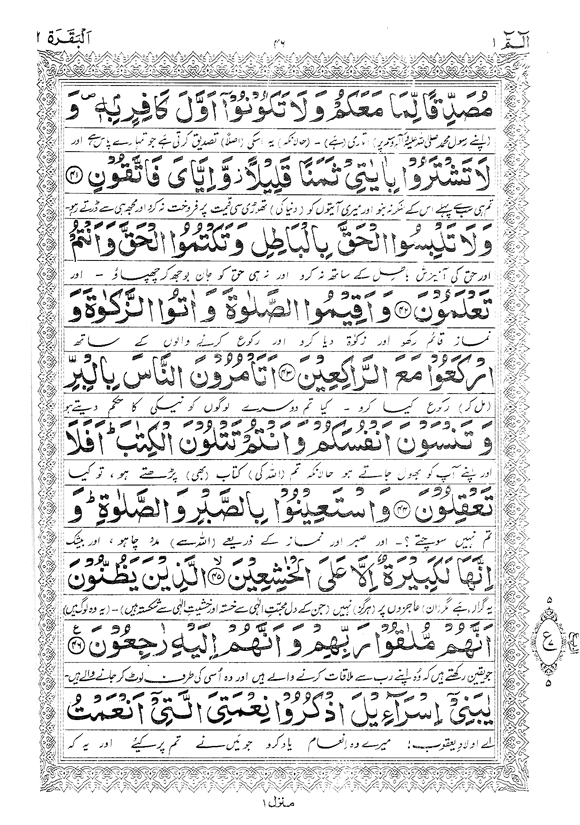 الٓمّٓ ١ ٤٦ اَلْبَقَرَة ٢
مُصَدِّقًا لِّمَا مَعَكُمْ وَلَا تَكُوْنُوْۤا اَوَّلَ كَافِرٍۭ بِهٖ ۪ وَ
(اپنے رسول محمد صلی اللہ علیہ وآلہ وسلم پر) اتاری (ہے) - (حالانکہ) یہ اسکی (اصلًا) تصدیق کرتی ہے جو تمہارے پاس ہے اور
لَا تَشْتَرُوْا بِاٰيٰتِيْ ثَمَنًا قَلِيْلًا ؗ وَّاِيَّايَ فَاتَّقُوْنِ ﴿٤١﴾
تم ہی سب سے پہلے اس کے منکر نہ بنو اور میری آیتوں کو (دنیا کی) تھوڑی سی قیمت پر فروخت نہ کرو اور مجھ ہی سے ڈرتے رہو-
وَلَا تَلْبِسُوا الْحَقَّ بِالْبَاطِلِ وَتَكْتُمُوا الْحَقَّ وَاَنْتُمْ
اور حق کی آمیزش باطل کے ساتھ نہ کرو اور نہ ہی حق کو جان بوجھ کر چھپاؤ - اور
تَعْلَمُوْنَ ﴿٤٢﴾ وَاَقِيْمُوا الصَّلٰوةَ وَاٰتُوا الزَّكٰوةَ وَ
نماز قائم رکھو اور زکوٰۃ دیا کرو اور رکوع کرنے والوں کے ساتھ
ارْكَعُوْا مَعَ الرّٰكِعِيْنَ ﴿٤٣﴾ اَتَاْمُرُوْنَ النَّاسَ بِالْبِرِّ
(مل کر) رکوع کیا کرو - کیا تم دوسرے لوگوں کو نیکی کا حکم دیتے ہو
وَتَنْسَوْنَ اَنْفُسَكُمْ وَاَنْتُمْ تَتْلُوْنَ الْكِتٰبَ ؕ اَفَلَا
اور اپنے آپ کو بھول جاتے ہو حالانکہ تم (اللہ کی) کتاب (بھی) پڑھتے ہو، تو کیا
تَعْقِلُوْنَ ﴿٤٤﴾ وَاسْتَعِيْنُوْا بِالصَّبْرِ وَالصَّلٰوةِ ؕ وَ
تم نہیں سوچتے؟- اور صبر اور نماز کے ذریعے (اللہ سے) مدد چاہو، اور بیشک
اِنَّهَا لَكَبِيْرَةٌ اِلَّا عَلَى الْخٰشِعِيْنَ ﴿٤٥﴾ الَّذِيْنَ يَظُنُّوْنَ
یہ گراں ہے مگر (ان) عاجزوں پر (ہرگز) نہیں (جن کے دل محبتِ الٰہی سے خستہ اور خشیتِ الٰہی سے شکستہ ہیں) - (یہ وہ لوگ ہیں)
اَنَّهُمْ مُّلٰقُوْا رَبِّهِمْ وَاَنَّهُمْ اِلَيْهِ رٰجِعُوْنَ ﴿٤٦﴾
جو یقین رکھتے ہیں کہ وہ اپنے رب سے ملاقات کرنے والے ہیں اور وہ اسی کی طرف لوٹ کر جانے والے ہیں-
يٰبَنِيْۤ اِسْرَآءِيْلَ اذْكُرُوْا نِعْمَتِيَ الَّتِيْۤ اَنْعَمْتُ
اے اولادِ یعقوب! میرے وہ انعام یاد کرو جو میں نے تم پر کیے اور یہ کہ
منزل ١